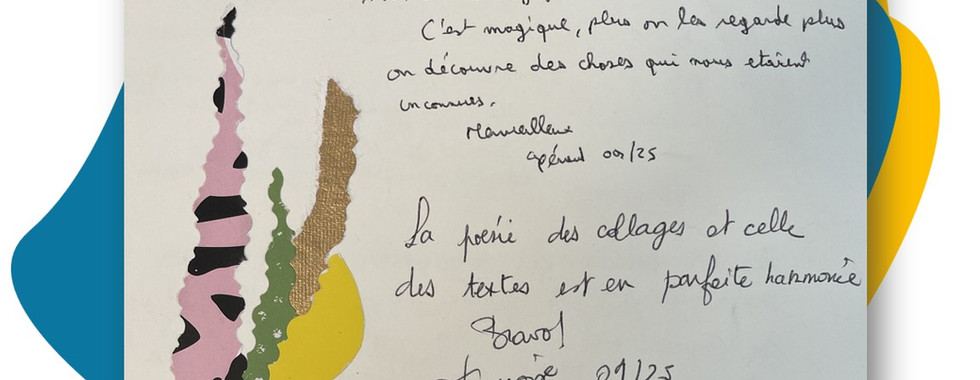 C'est magique, plus on les regarde plus
on découvre des choses qui nous etaient
inconnues.
Merveilleux
09/25
La poésie des collages et celle
des textes est en parfaite harmonie
Bravo!
09/25